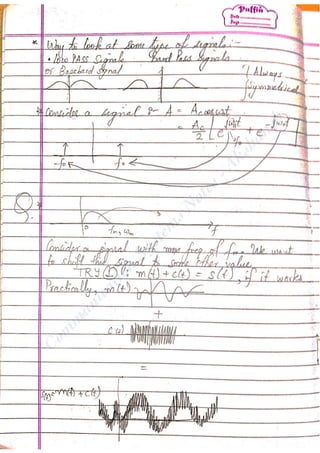 Puffin
Date
Page
* Way to look at some type of signals :-
• Low PASS Signals Band Pass Signals
or Baseband Signal
Always
Symmetrical
* Consider a signal A = Ac cos ωct
= Ac/2 [e^jωct + e^-jωct]
-fo fo fo
Q.
0 fm, ωm f
Consider a signal with max freq of fm. We want
to shift this signal to some other value.
TRY ① : m(t) + c(t) = s(t), if it works
Practically, m(t)
+
c(t)
=
m(t) + c(t)